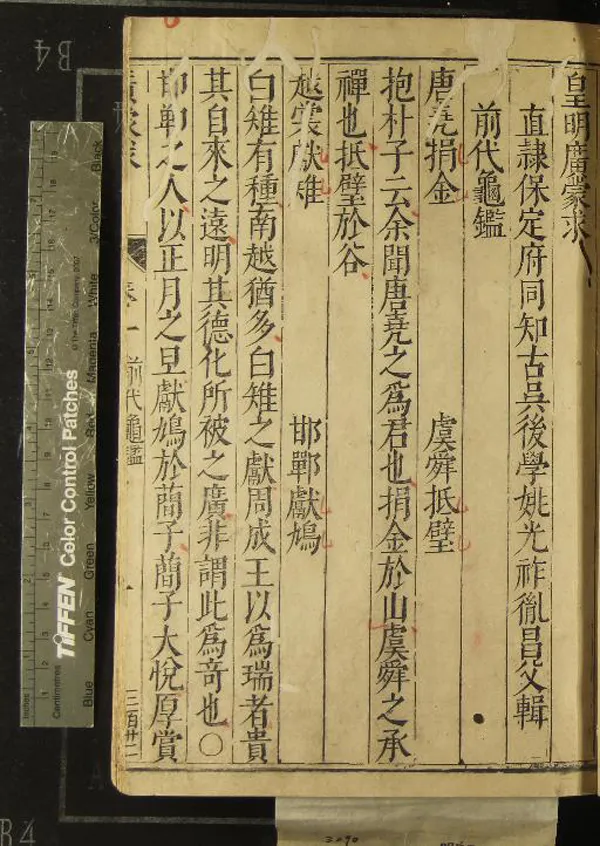 皇明廣蒙求
直隷保定府同知古吳後學姚光祚胤昌父輯
前代龜鑑
唐堯捐金 虞舜抵璧
抱朴子云余聞唐堯之為君也捐金於山虞舜之承
禪也抵璧於谷
越裳獻雉 邯鄲獻鳩
白雉有種南越猶多白雉之獻周成王以為瑞者貴
其自來之遠明其德化所被之廣非謂此為奇也○
邯鄲之人以正月之旦獻鳩於蕳子蕳子大悅厚賞
廣蒙求 卷一 前代龜鑑 一 三百廿二
B4
B4
TIFFEN Color Control Patches
© The Tiffen Company, 2007
Inches
Centimetres
Blue Cyan Green Yellow Red Magenta White 3/Color Black
3090